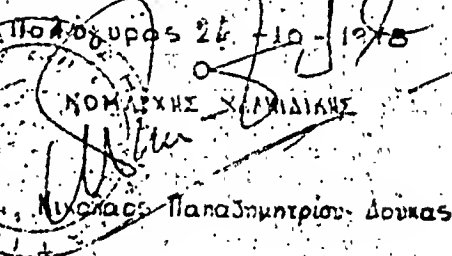 Πολύγυρος 24 -10 - 1978
Ο
ΝΟΜΑΡΧΗΣ ΧΑΛΚΙΔΙΚΗΣ
Νικόλαος Παπαδημητρίου Δούκας